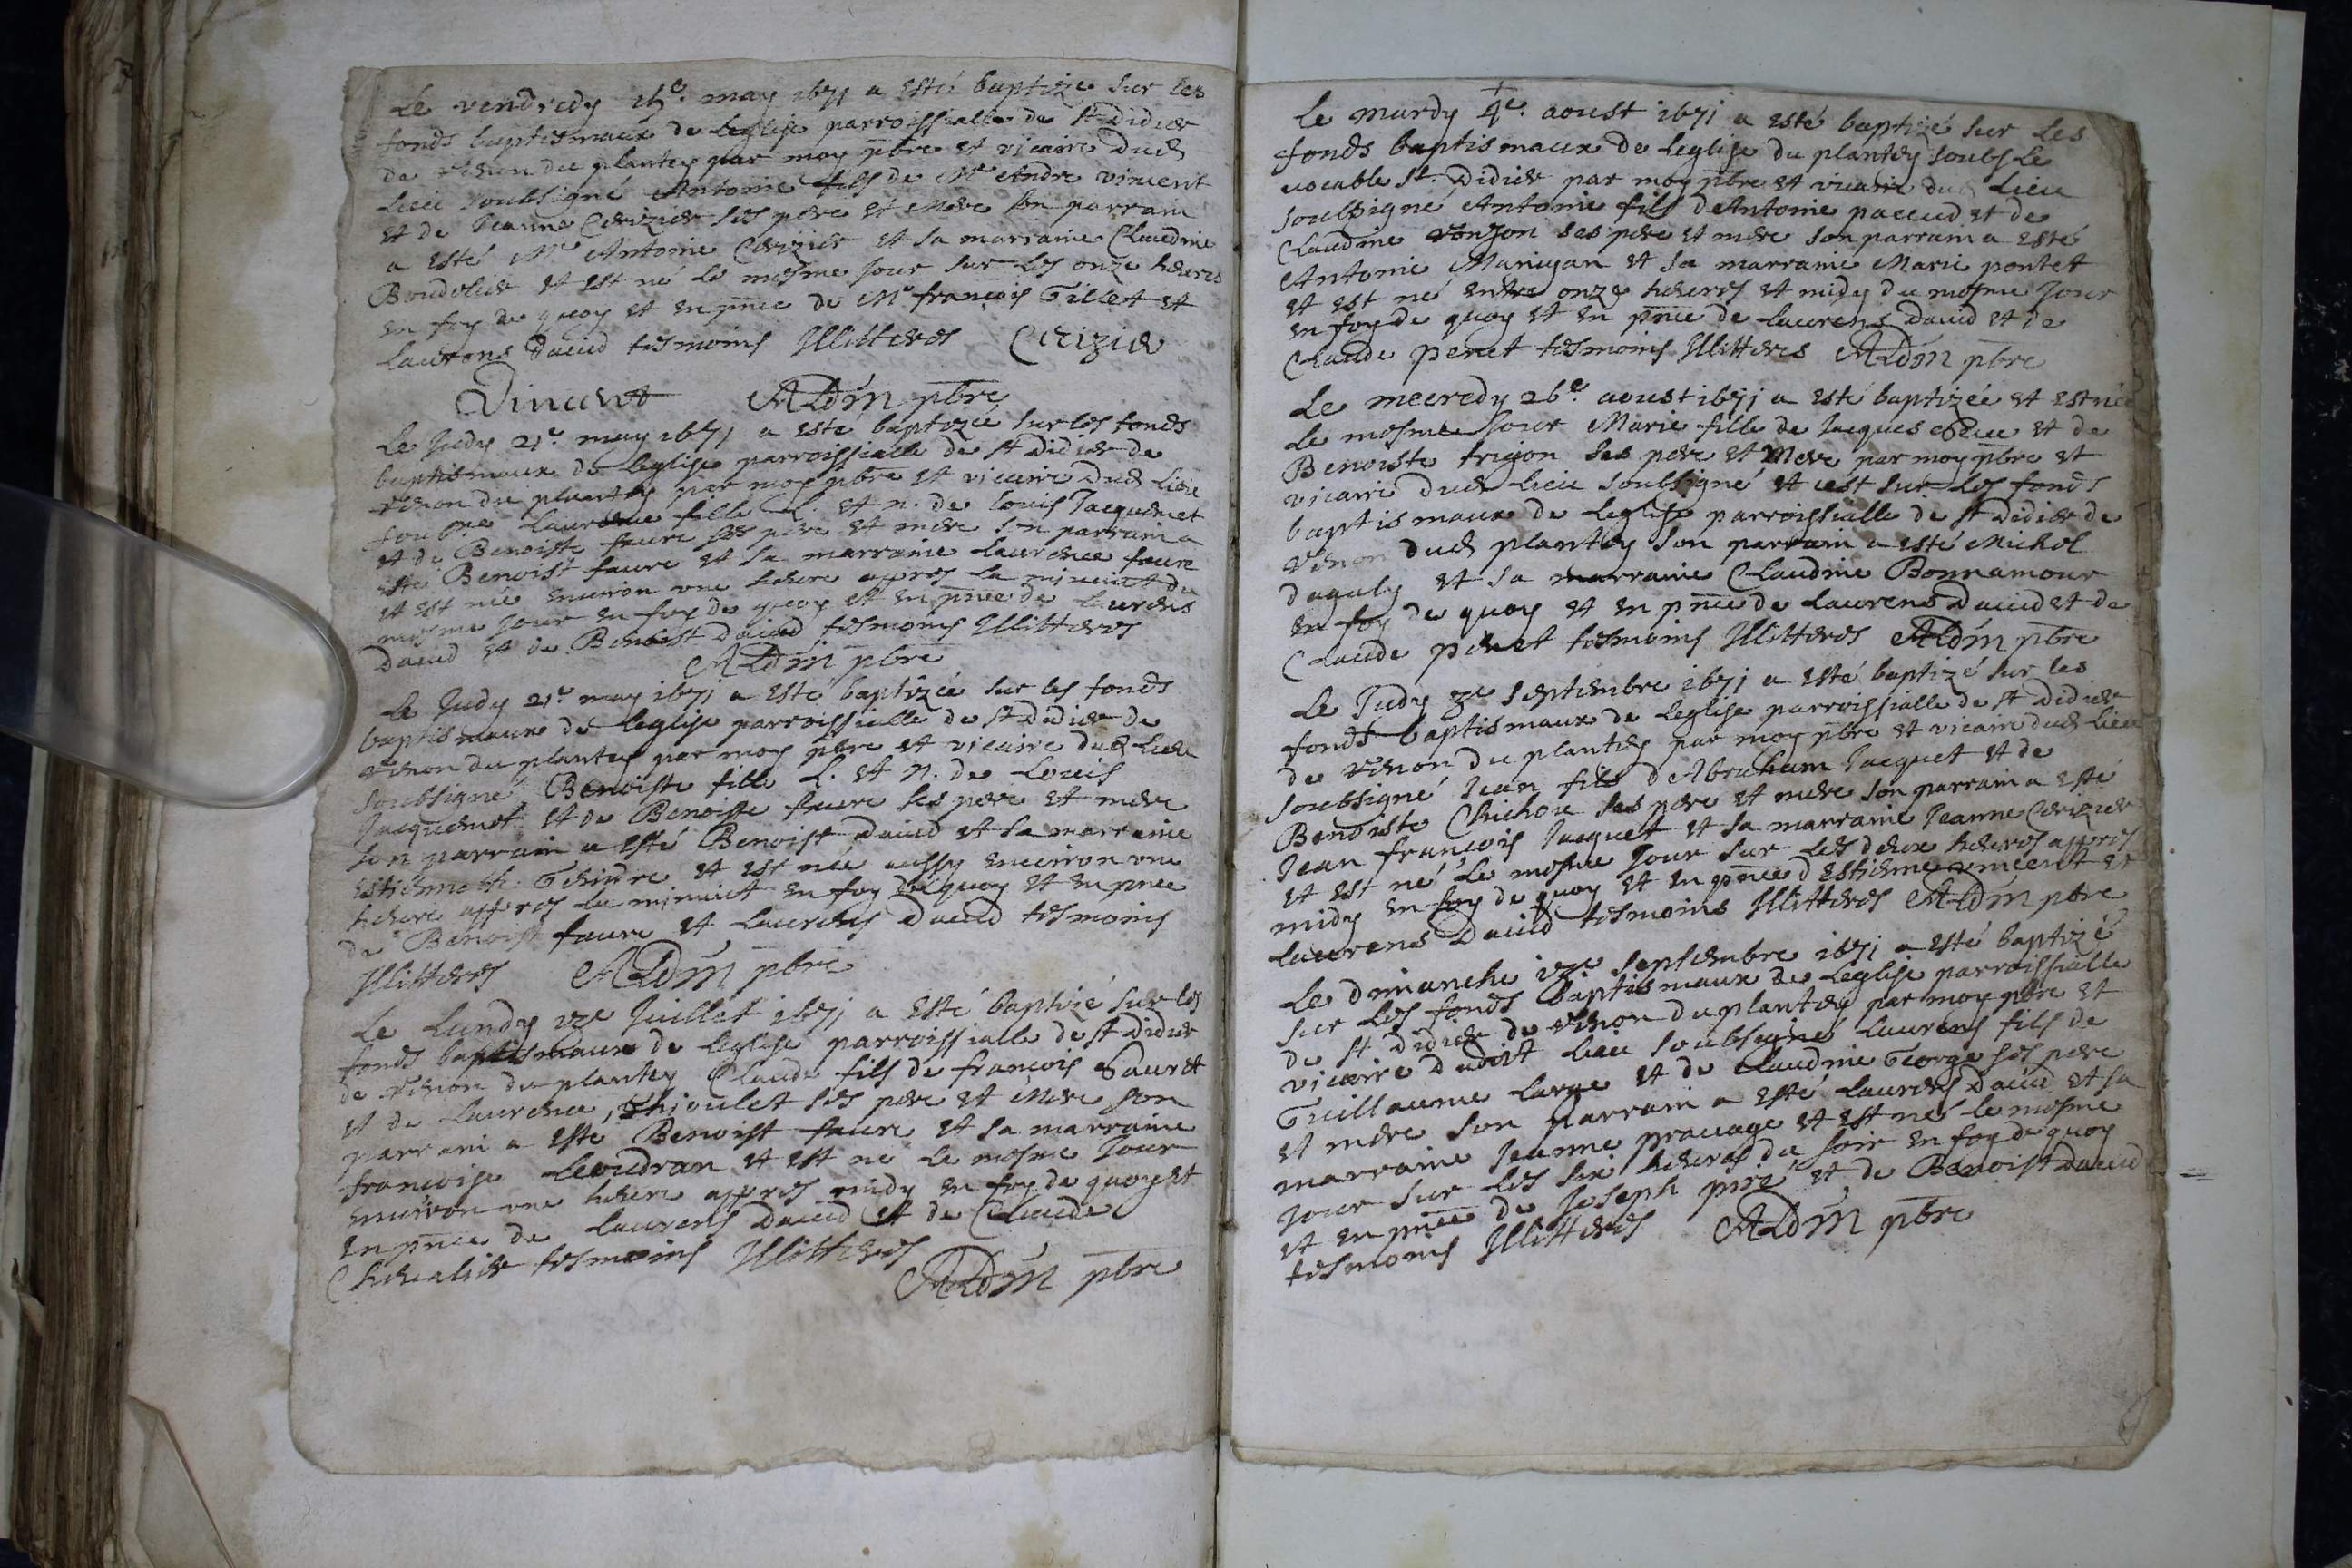 Le vendredy 15e. may 1671 a esté baptizé sur les
fonds baptismaux de leglise parroissialle de st Didier
de du plantey par moy pbre et vicaire dud
lieu soubsigné Antoine fils de Me Andre vincent
et de Jeanne Cerizier ses pere et mere son parrain
a esté Me Antoine Cerizier et sa marraine Claudine
et est né le mesme jour sur les onze heures
en foy de quoy et en pnce de Me françois Gillet et
Laurens Dauid tesmoins Illitteres Cerizier
Vincent ALdm pbre
Le Judy 21e. may 1671 a esté baptizée sur les fonds
baptismaux de leglise parroissialle de st Didier de
du plantey par moy pbre et vicaire dud lieu
soubne Laurence fille L. et n. de Louis Jacquemet
et de Benoiste faure ses pere et mere son parrain a
esté Benoist faure et sa marraine Laurence faure
et est née enuiron vne heure appres la minuict du
mesme jour en foy de quoy et en pnce de Laurens
Dauid et de Benoist Dauid tesmoins Illitteres
ALdm pbre
Le Judy 21e may 1671 a esté baptizée sur les fonds
baptismaux de leglise parroissialle de st Didier de
du plantey par moy pbre et vicaire dud lieu
soubsigné Benoiste fille L. et N. de Louis
Jacquemet et de Benoiste faure ses pere et mere
son parrain a esté Benoist Dauid et sa marraine
Gendre et est née aussy enuiron vne
heure appres la minuict en foy de quoy et en pnce
de Benoist faure et Laurens Dauid tesmoins
Illitteres ALdm pbre
Le Lundy Juillet 1671 a esté baptizé sur les
fonds baptismaux de leglise parroissialle de st Didier
de du plantey Claude fils de francois
et de Laurence Thioulet ses pere et mere son
parrain a esté Benoist faure et sa marraine
francoise Leuudran et est ne le mesme jour
enuiron vne heure appres midy en foy de quoy et
en pnce de Laurens Dauid et de Claude
Cheualier tesmoins Illitteres
ALdm pbre
Le mardy 4e. aoust 1671 a esté baptizé sur les
fonds baptismaux de leglise du plantey soubs le
uocable st. Didier par moy pbre et vicaire dud lieu
soubsigné Antoine fils dAntoine paccud et de
Claudine ses pere et mere son parrain a esté
Antoine Manigan et sa marraine Marie pontet
et est né entre onze heures et midy du mesme jour
en foy de quoy et en pnce de Laurens Dauid et de
Claude peret tesmoins Illitteres ALdm pbre
Le mecredy 26e. aoust 1671 a esté baptizée et est née
le mesme jour Marie fille de Jacques et de
Benoiste trigon ses pere et mere par moy pbre et
vicaire dud lieu soubsigné et cest sur les fonds
baptismaux de leglise parroissialle de st Didier de
dud plantey son parrain a esté Michel
daguly et sa marraine Claudine Bonnamour
en foy de quoy et en pnce de Laurens Dauid et de
Claude peret tesmoins Illitteres ALdm pbre
Le Judy 3e septembre 1671 a esté baptizé sur les
fonds baptismaux de leglise parroissialle de st Didier
de du plantey par moy pbre et vicaire dud lieu
soubsigné Jean fils dAbraham Jacquet et de
Benoiste Chichou ses pere et mere son parrain a esté
Jean francois Jacquet et sa marraine Jeanne Cerizier
et est né le mesme jour sur les deux heures appres
midy en foy de quoy et en pnce dEstienne vincent et
Laurens Dauid tesmoins Illitteres ALdm pbre
Le dimanche septembre 1671 a esté baptizé
sur les fonds baptismaux de leglise parroissialle
de st Didier de du plantey par moy pbre et
vicaire dudit lieu soubsigné Laurens fils de
Guillaume Large et de Claudine George ses pere
et mere son parrain a esté Laurens Dauid et sa
marraine Jeanne prauage et est né le mesme
jour sur les six heures du soir en foy de quoy
et en pnce de Joseph et de Benoist Dauid
tesmoins Illitteres ALdm pbre